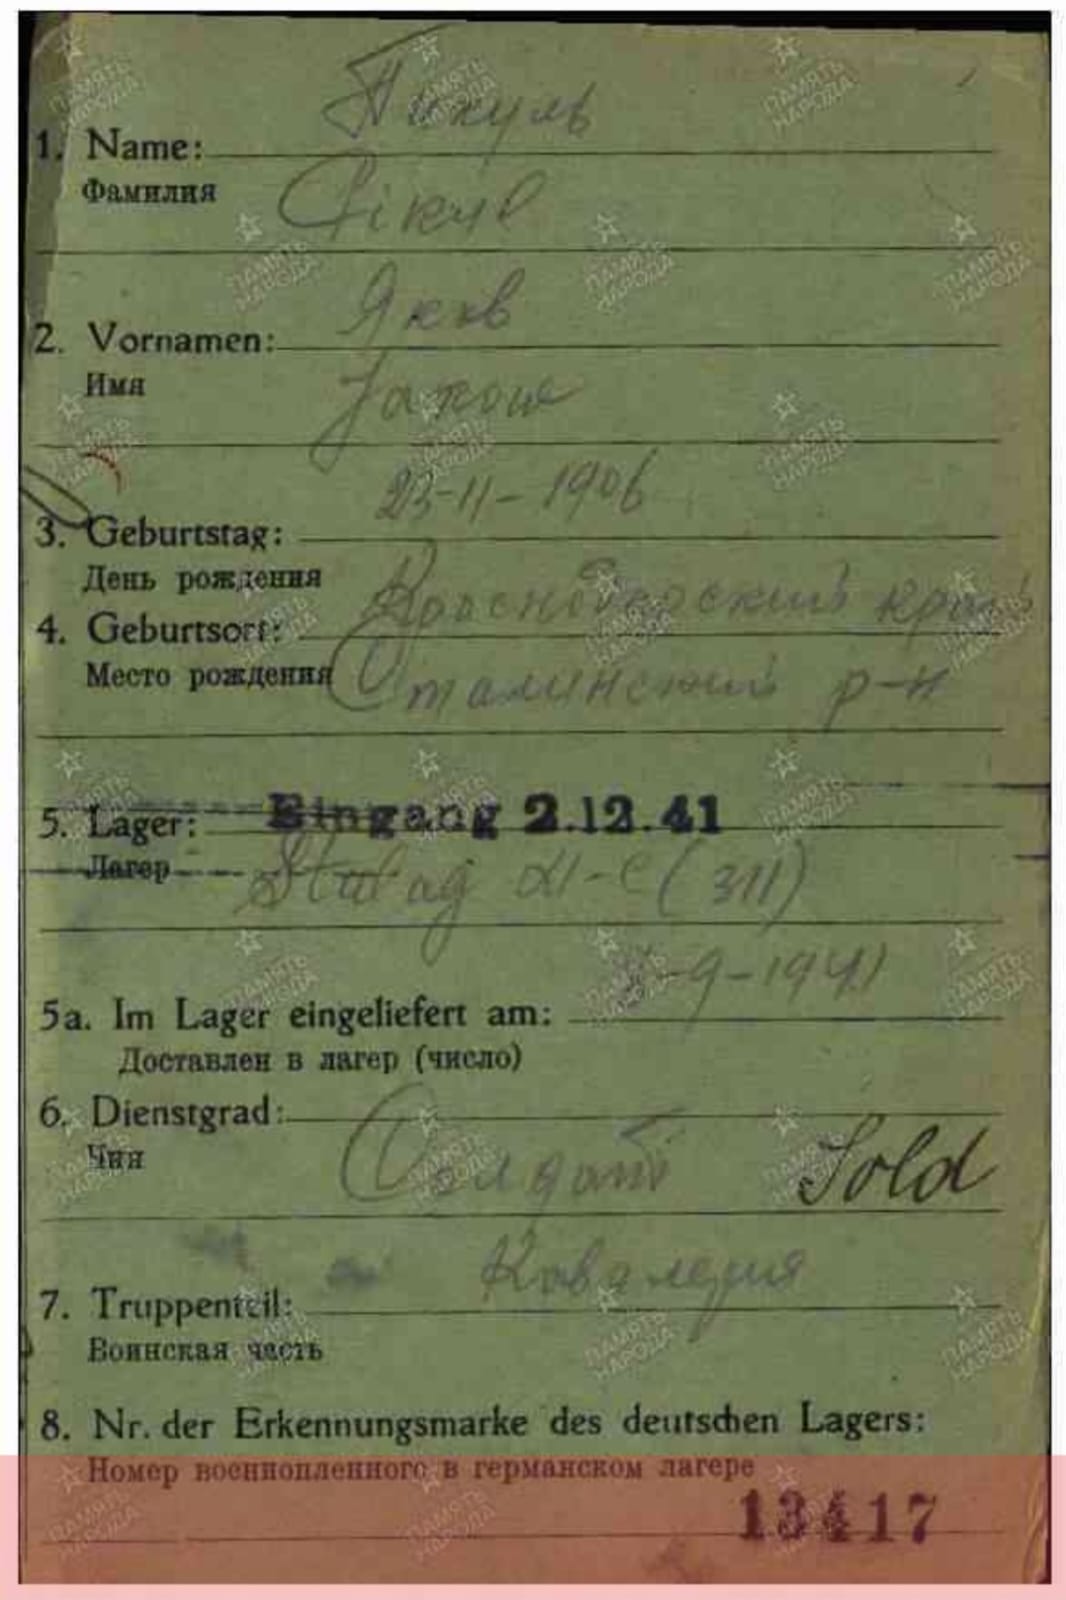 Пикуль
1. Name:
Фамилия
Pikul
Яков
2. Vornamen:
Имя
Jakow
23-11-1906
3. Geburtstag:
День рождения
4. Geburtsort: край
Место рождения Сталинский р-н
5. Lager: Eingang 2.12.41
Лагер
Stalag XI-C (311)
-9-1941
5a. Im Lager eingeliefert am:
Доставлен в лагер (число)
6. Dienstgrad:
Чин Солдат Sold
Кавалерия
7. Truppenteil:
Воинская часть
8. Nr. der Erkennungsmarke des deutschen Lagers:
Номер военнопленного в германском лагере
13417
ПАМЯТЬ НАРОДА